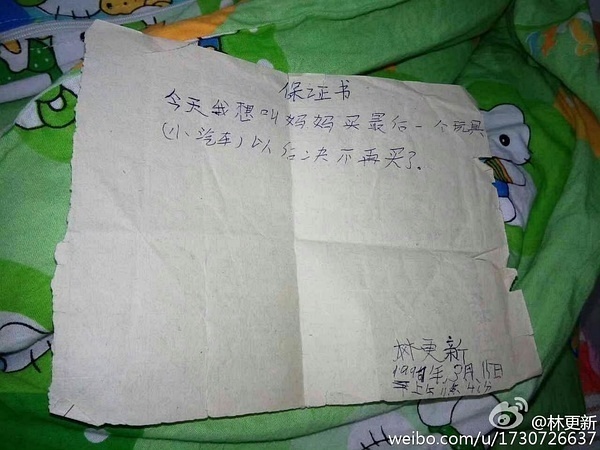 保证书
今天我想叫妈妈买最后一个玩具
(小汽车)以后决不再买了.
林更新
月15日
@林更新
weibo.com/u/1730726637